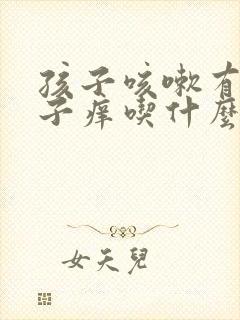 孩子咳嗽有
子痒喫什麼
女天兒